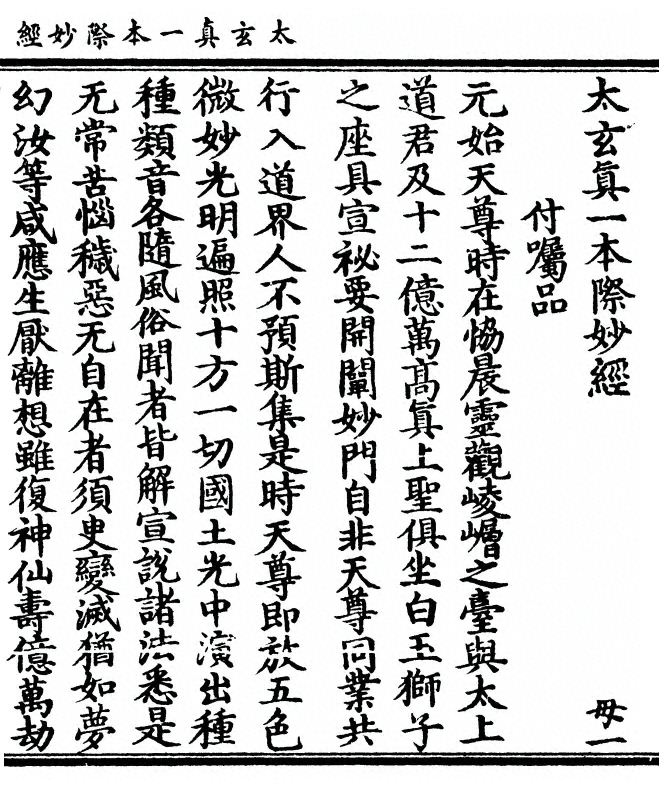 太玄真一本際妙經
太玄真一本際妙經 毋一
付囑品
元始天尊時在協晨靈觀崚嶒之臺與太上
道君及十二億萬高真上聖俱坐白玉獅子
之座具宣祕要開闡妙門自非天尊同業共
行入道界人不預斯集是時天尊即放五色
微妙光明遍照十方一切國土光中演出種
種類音各隨風俗聞者皆解宣說諸法悉是
无常苦惱穢惡无自在者須史變滅猶如夢
幻汝等咸應生厭離想雖復神仙壽億萬劫